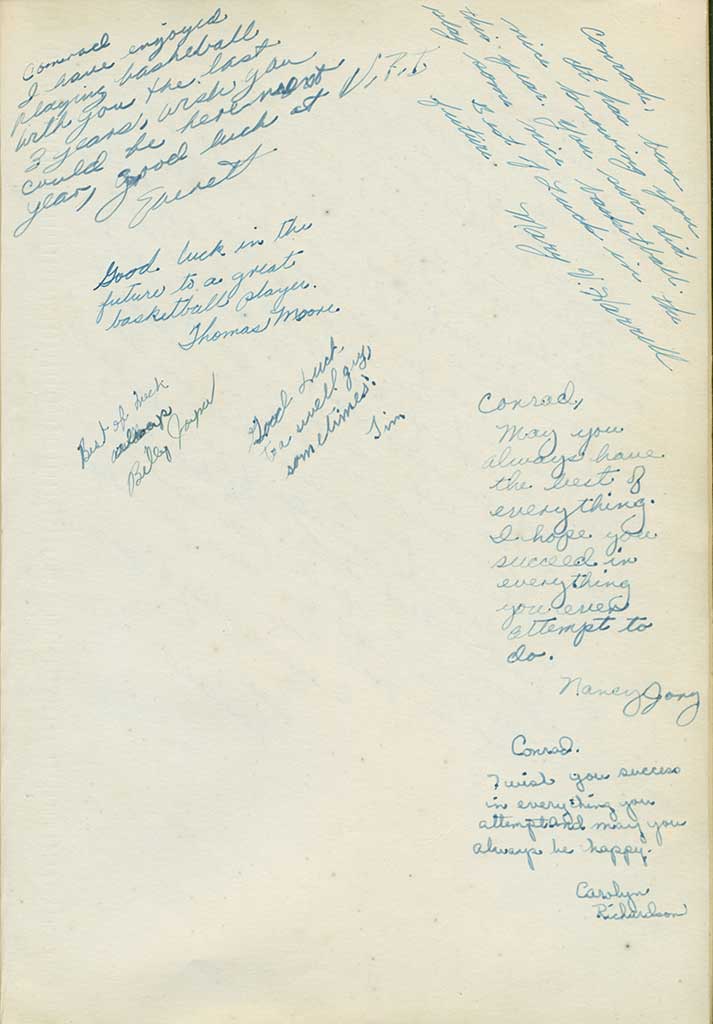 Conrad
I have enjoyed
playing basketball
with you the last
3 years, wish you
could be here next
year, good luck at V.P.I.
Everett
Conrad,
It has been
nice knowing you
this year. You sure did
play some nice basketball.
Best of Luck in the
future.
Mary V. Harrill
Good luck in the
future to a great
basketball player.
Thomas Moore
Best of luck
always
Billy
Good Luck
to a swell guy,
sometimes!
Jim
Conrad,
May you
always have
the best of
everything.
I hope you
succeed in
everything
you ever
attempt to
do.
Nancy Jony
Conrad.
I wish you success
in everything you
attempt and may you
always be happy.
Carolyn
Richardson